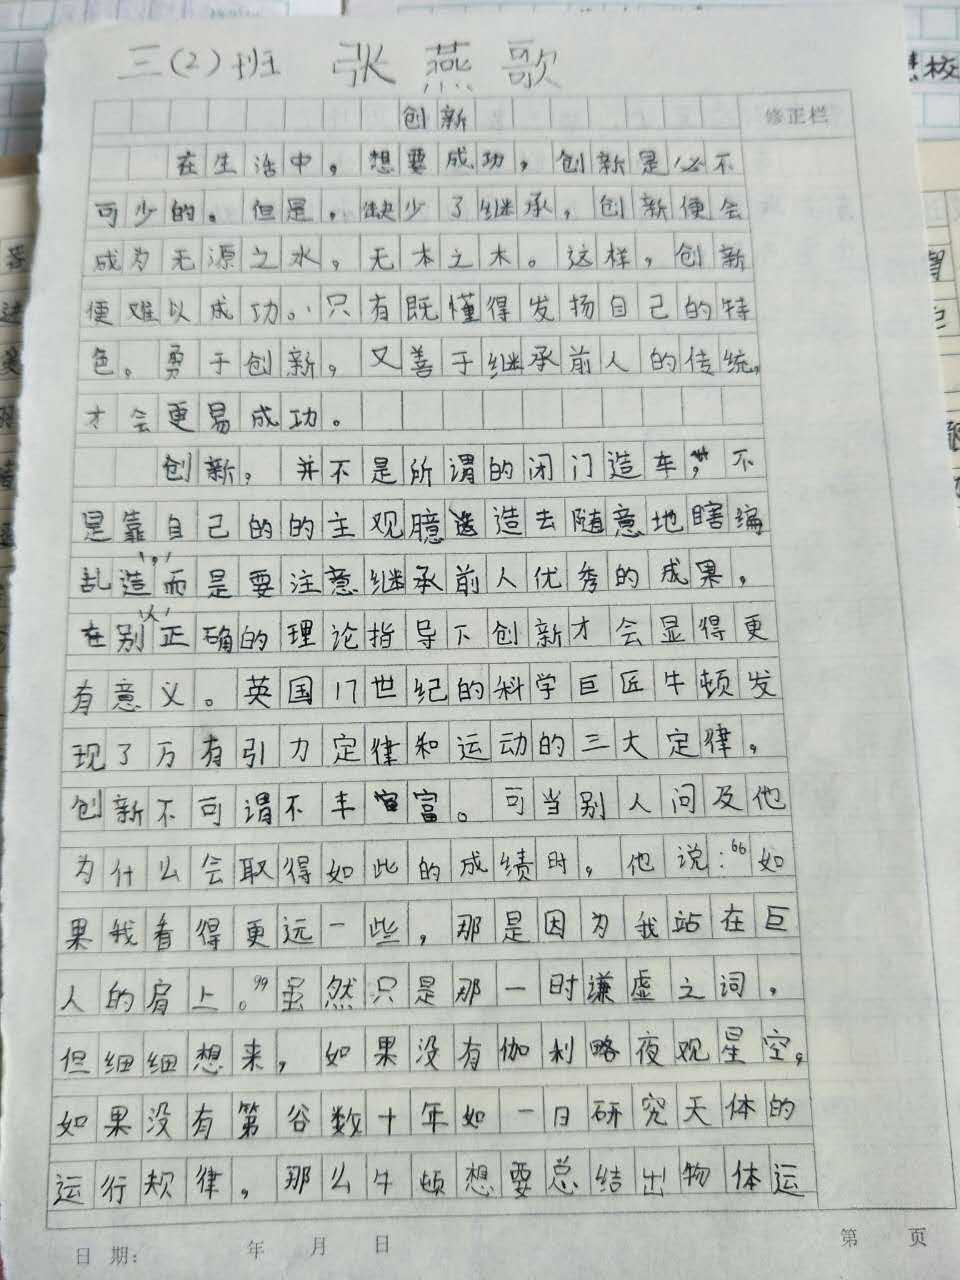 三(2)班 张燕歌
创新
修正栏
在生活中，想要成功，创新是必不
可少的。但是，缺少了继承，创新便会
成为无源之水，无本之木。这样，创新
便难以成功。只有既懂得发扬自己的特
色。勇于创新，又善于继承前人的传统，
才会更易成功。
创新，并不是所谓的闭门造车，不
是靠自己的的主观臆造去随意地瞎编
乱造，而是要注意继承前人优秀的成果，
在别人正确的理论指导下创新才会显得更
有意义。英国17世纪的科学巨匠牛顿发
现了万有引力定律和运动的三大定律，
创新不可谓不丰富。可当别人问及他
为什么会取得如此的成绩时，他说：“如
果我看得更远一些，那是因为我站在巨
人的肩上。”虽然只是那一时谦虚之词，
但细细想来，如果没有伽利略夜观星空，
如果没有第谷数十年如一日研究天体的
运行规律，那么牛顿想要总结出物体运
日期： 年 月 日
第 页